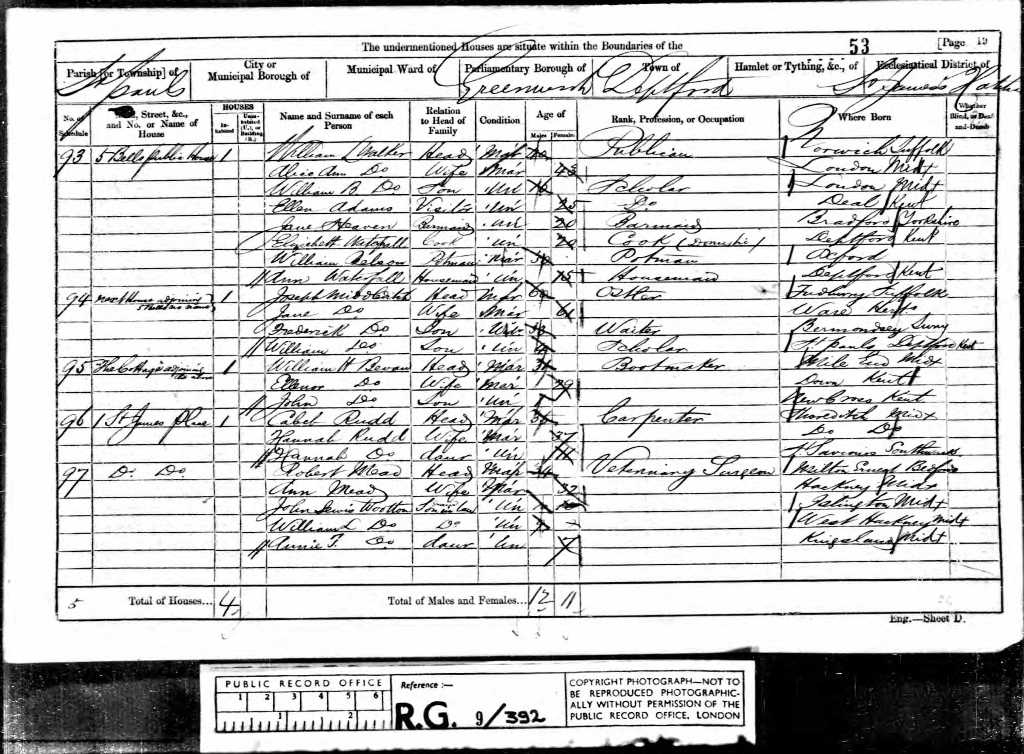 The undermentioned Houses are situate within the Boundaries of the 53 [Page 19
Parish [or Township] of St Pauls
City or Municipal Borough of
Municipal Ward of
Parliamentary Borough of Greenwich
Town of Deptford
Hamlet or Tything, &c., of
Ecclesiastical District of St James's
No. of Schedule
Street, &c., and No. or Name of House
HOUSES
Inhabited
Uninhabited (U.), or Building (B.)
Name and Surname of each Person
Relation to Head of Family
Condition
Age of
Males
Females
Rank, Profession, or Occupation
Where Born
Whether Blind, or Deaf-and-Dumb
93 5 Bells public House 1 William L Walker Head Mar Publican Norwich Suffolk
Alice Ann Do Wife Mar 43 London Midx
William B Do Son Un Scholar London Midx
Ellen Adams Visitor Un 25 Do Deal Kent
Jane Heaven Barmaid Un 20 Barmaid Bradford Yorkshire
Elizabeth Mitchell Cook Un 20 Cook (Domestic) Deptford Kent
William Potman Mar Potman Oxford
Ann Waterfall Housemaid Un 15 Housemaid Deptford Kent
94 next House adjoining 1 Joseph Head Mar Ostler Sudbury Suffolk
Jane Do Wife Mar 61 Ware Herts
Frederick Do Son Waiter Bermondsey Surry
William Do Son Un Scholar St Pauls Deptford Kent
95 The Cottage adjoining the above 1 William H Bevan Head Mar Bootmaker Mile End Midx
Ellenor Do Wife Mar 29 Down Kent
John Do Son Un New Cross Kent
96 1 St James place 1 Cabel Rudd Head Mar 36 Carpenter Shoreditch Midx
Hannah Rudd Wife Mar 37 Do Do
Hannah Do daur Un 11 St Saviours Southwark
97 Do Do Robert Mead Head Mar 34 Veterinary Surgeon Milton Ernest Bedford
Ann Mead Wife Mar 37 Hackney Midx
John Lewis Wootton Son in law Un Islington Midx
William L Do Do Un West Hackney Midx
Annie T. Do daur Un 7 Kingsland Midx
5 Total of Houses... 4 Total of Males and Females... 12 11
Eng.—Sheet D.
PUBLIC RECORD OFFICE
1 2 3 4 5 6
1 2
Reference :—
R.G. 9/392
COPYRIGHT PHOTOGRAPH—NOT TO
BE REPRODUCED PHOTOGRAPHIC-
ALLY WITHOUT PERMISSION OF THE
PUBLIC RECORD OFFICE, LONDON